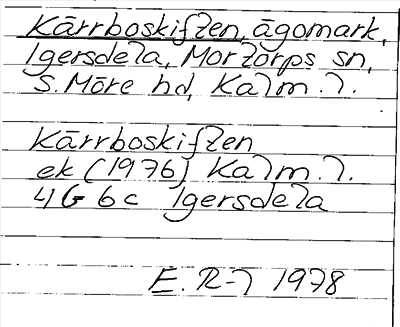 Kärrboskiften, ägomark,
Igersdela, Mortorps sn,
S. Möre hd, Kalm. l.
Kärrboskiften
ek (1976) Kalm. l.
4G 6c Igersdela
E. R-l 1978